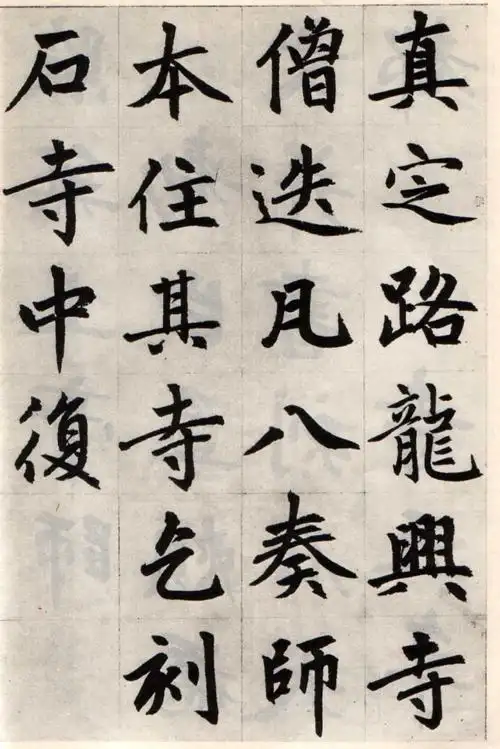 真定路龍興寺
僧迭凡八奏師
本住其寺乞刻
石寺中復